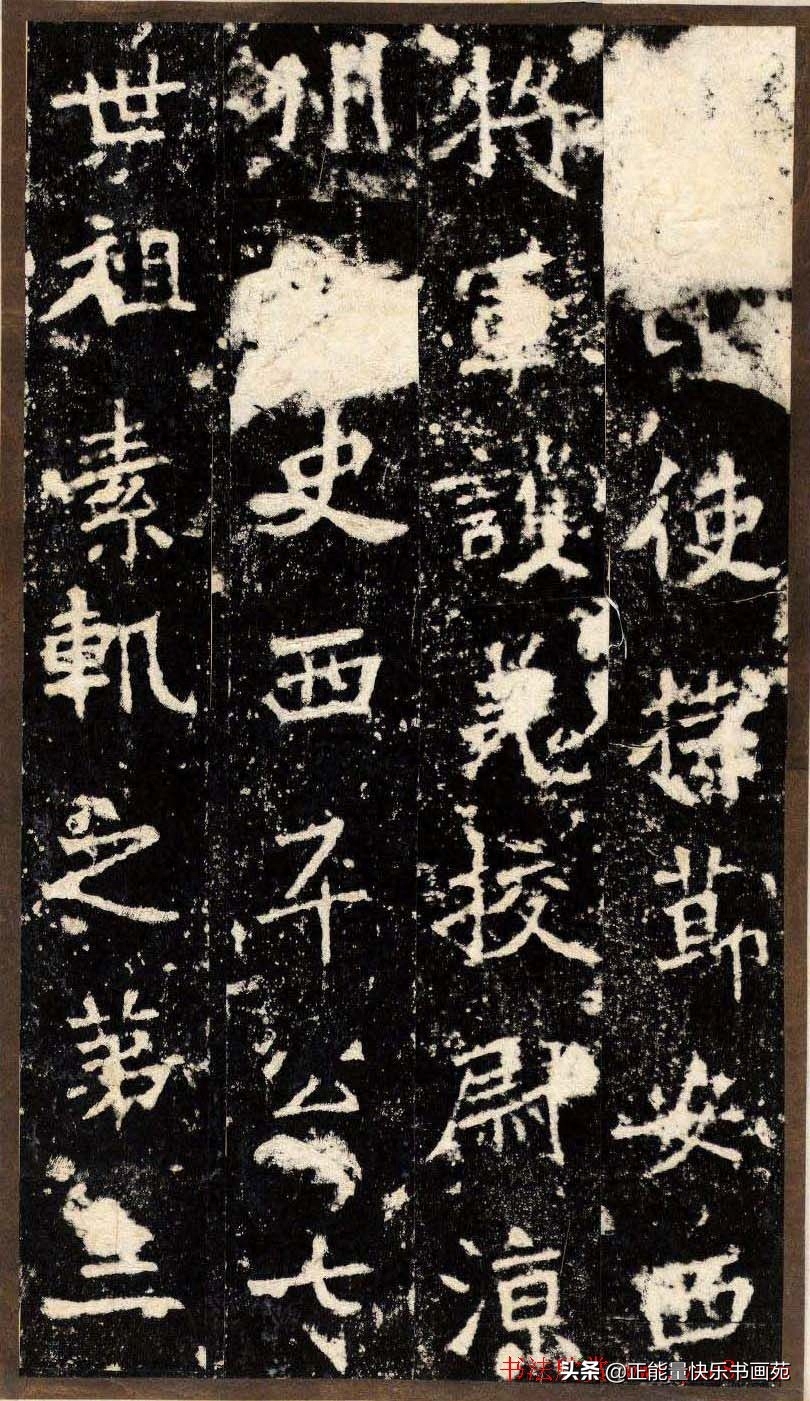 使持節安西
將軍護羌校尉涼
州史西平公七
世祖素軌之第三
书法
头条 @正能量快乐书画苑